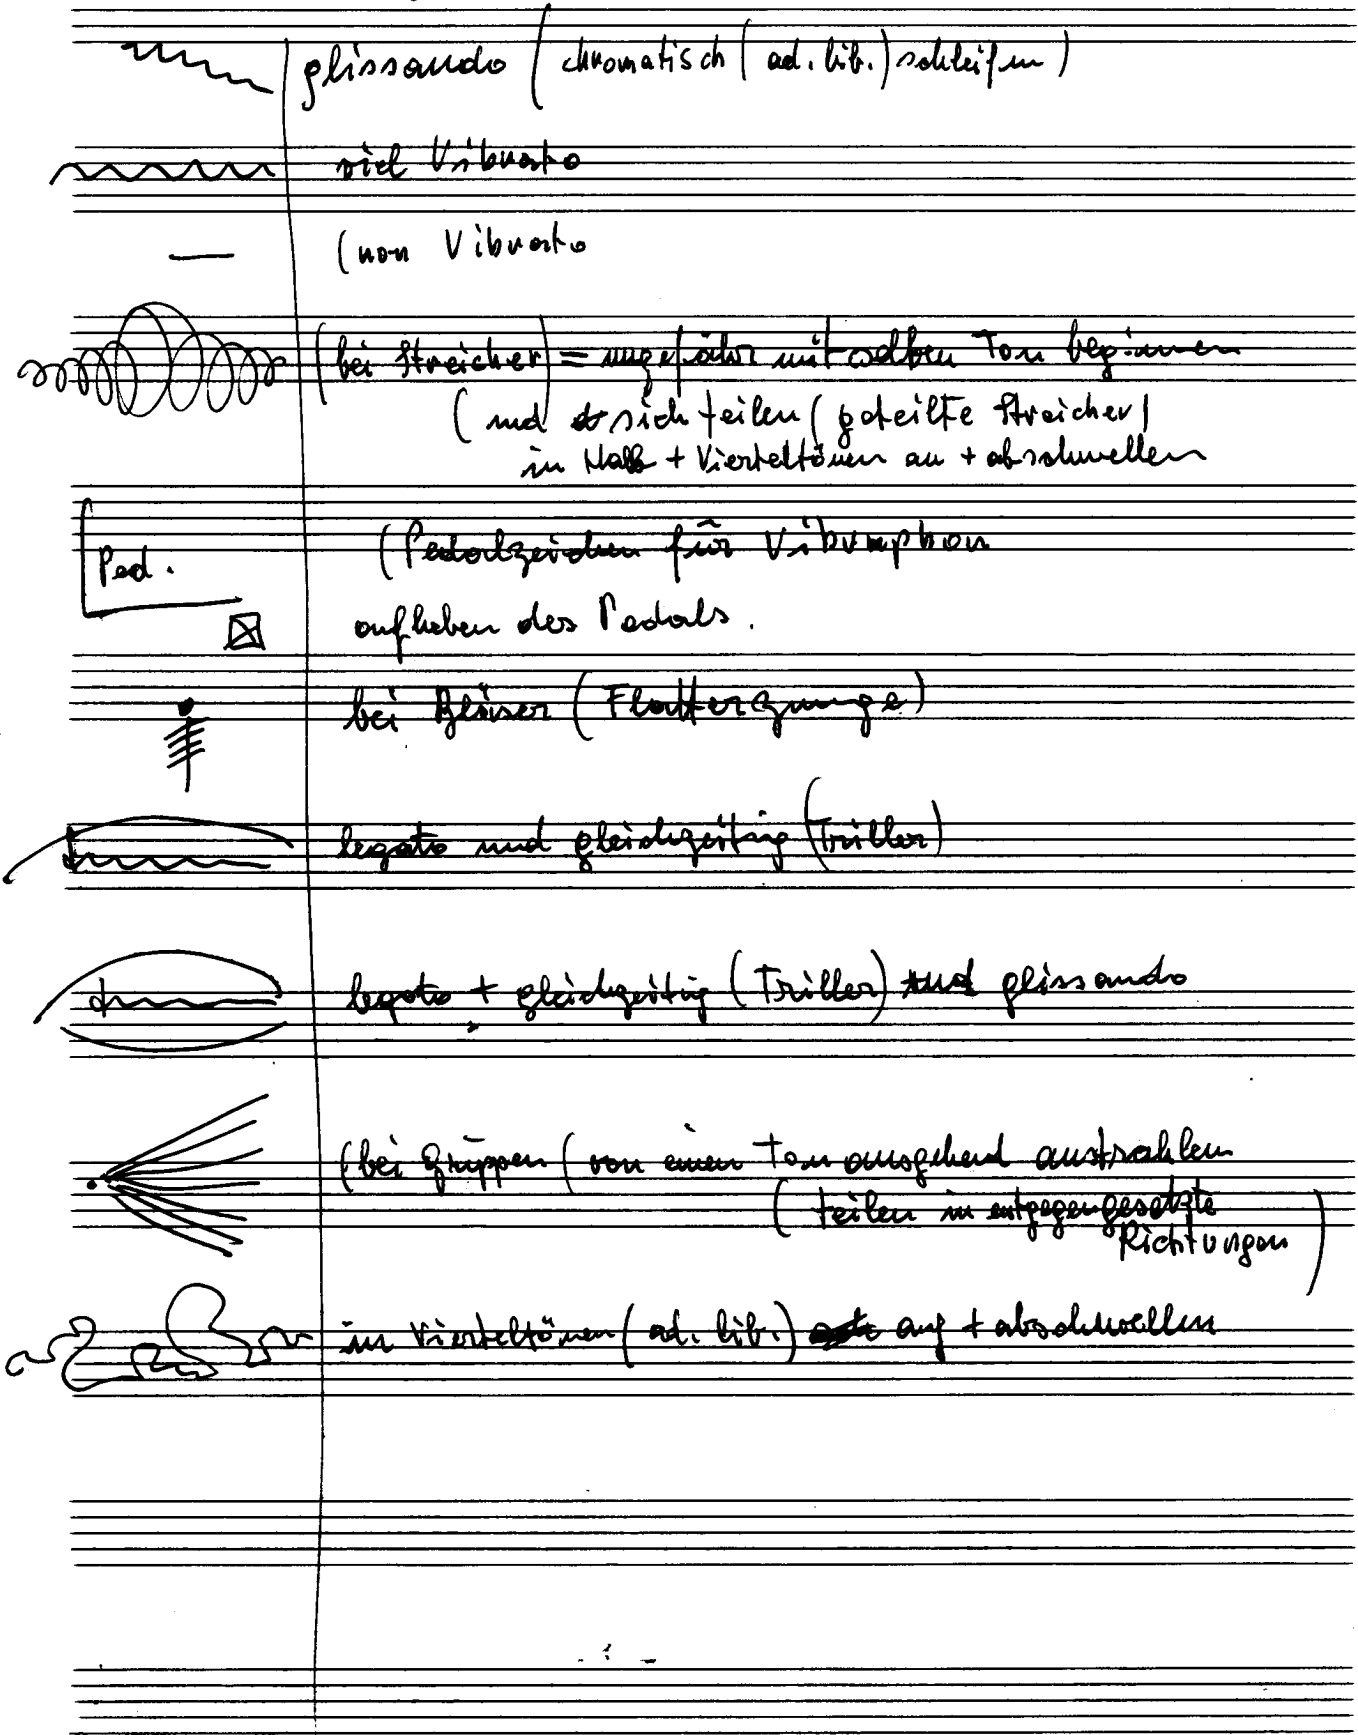 glissando (chromatisch (ad. lib.) schleifen)
viel Vibrato
(non Vibrato
(bei Streicher) = ungefähr mit selben Ton beginnen
(und sich teilen (geteilte Streicher)
in Halb + Vierteltönen an + abschwellen
Ped. (Pedalzeichen für Vibraphon
aufheben des Pedals.
bei Bläser (Flatterzunge)
legato und gleichzeitig (Triller)
legato + gleichzeitig (Triller) und glissando
(bei Gruppen (von einen Ton ausgehend austrahlen
(teilen in entgegengesetzte
Richtungen)
in Vierteltönen (ad. lib.) auf + abschwellen